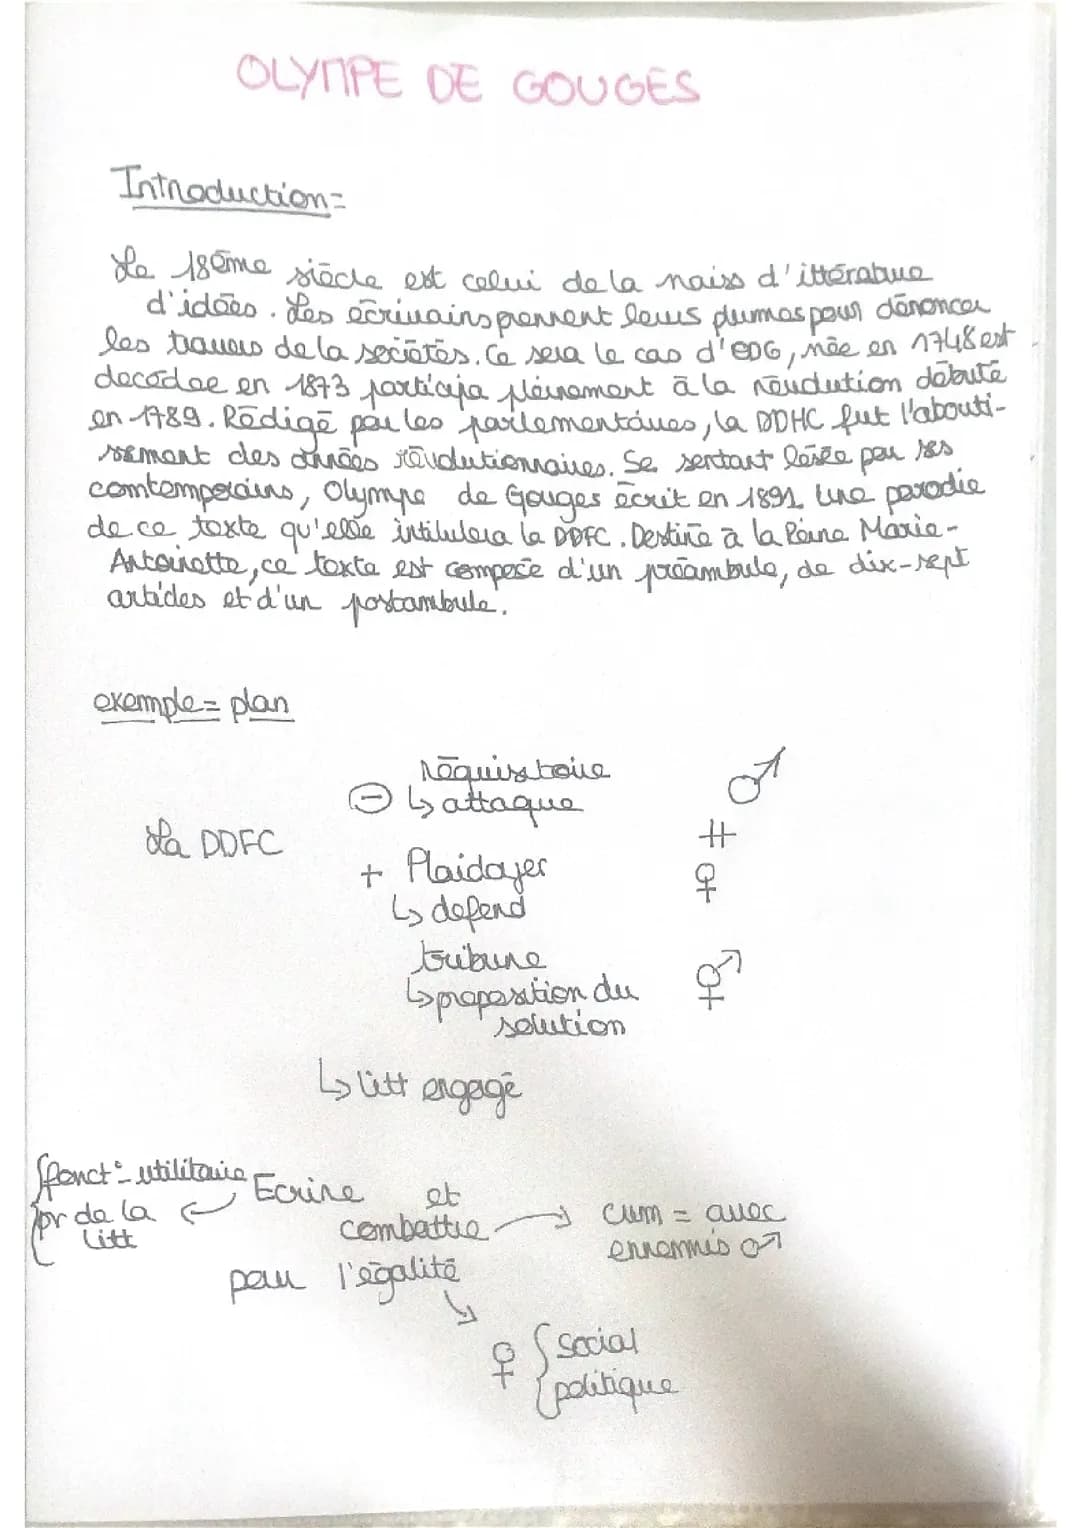 OLYMPE DE GOUGES
Introduction=
Le 18ème siècle est celui de la naiss d'ittérature
d'idées. Les écrivains prennent leurs plumes pour dénoncer
les travers de la sociétés. Ce sera le cas d'EDG, née en 1748 est
decédee en 1873 participa pleinement à la révolution débuté
en 1789. Rédigé par les parlementaires, la DDHC fut l'abouti-
ssemant des années révolutionnaires. Se sentant lésée par ses
comtemporains, Olympe de Gouges écrit en 1891 une parodie
de ce texte qu'elle intilulera la DDFC. Destiné à la Reine Marie-
Antoinette, ce texte est composé d'un préambule, de dix-sept
articles et d'un postambule.
exemple= plan
La DDFC
⊖ réquisitoire
↳ attaque
♂
#
+ Plaidoyer
↳ defend
♀
tribune
↳ proposition du
solution
⚥
↳ litt engagé
fonct° utilitaire
pr de la
litt
← Ecrire et
combattre → cum = avec
ennemis ♂
pour l'égalité
↘
♀ { social
politique